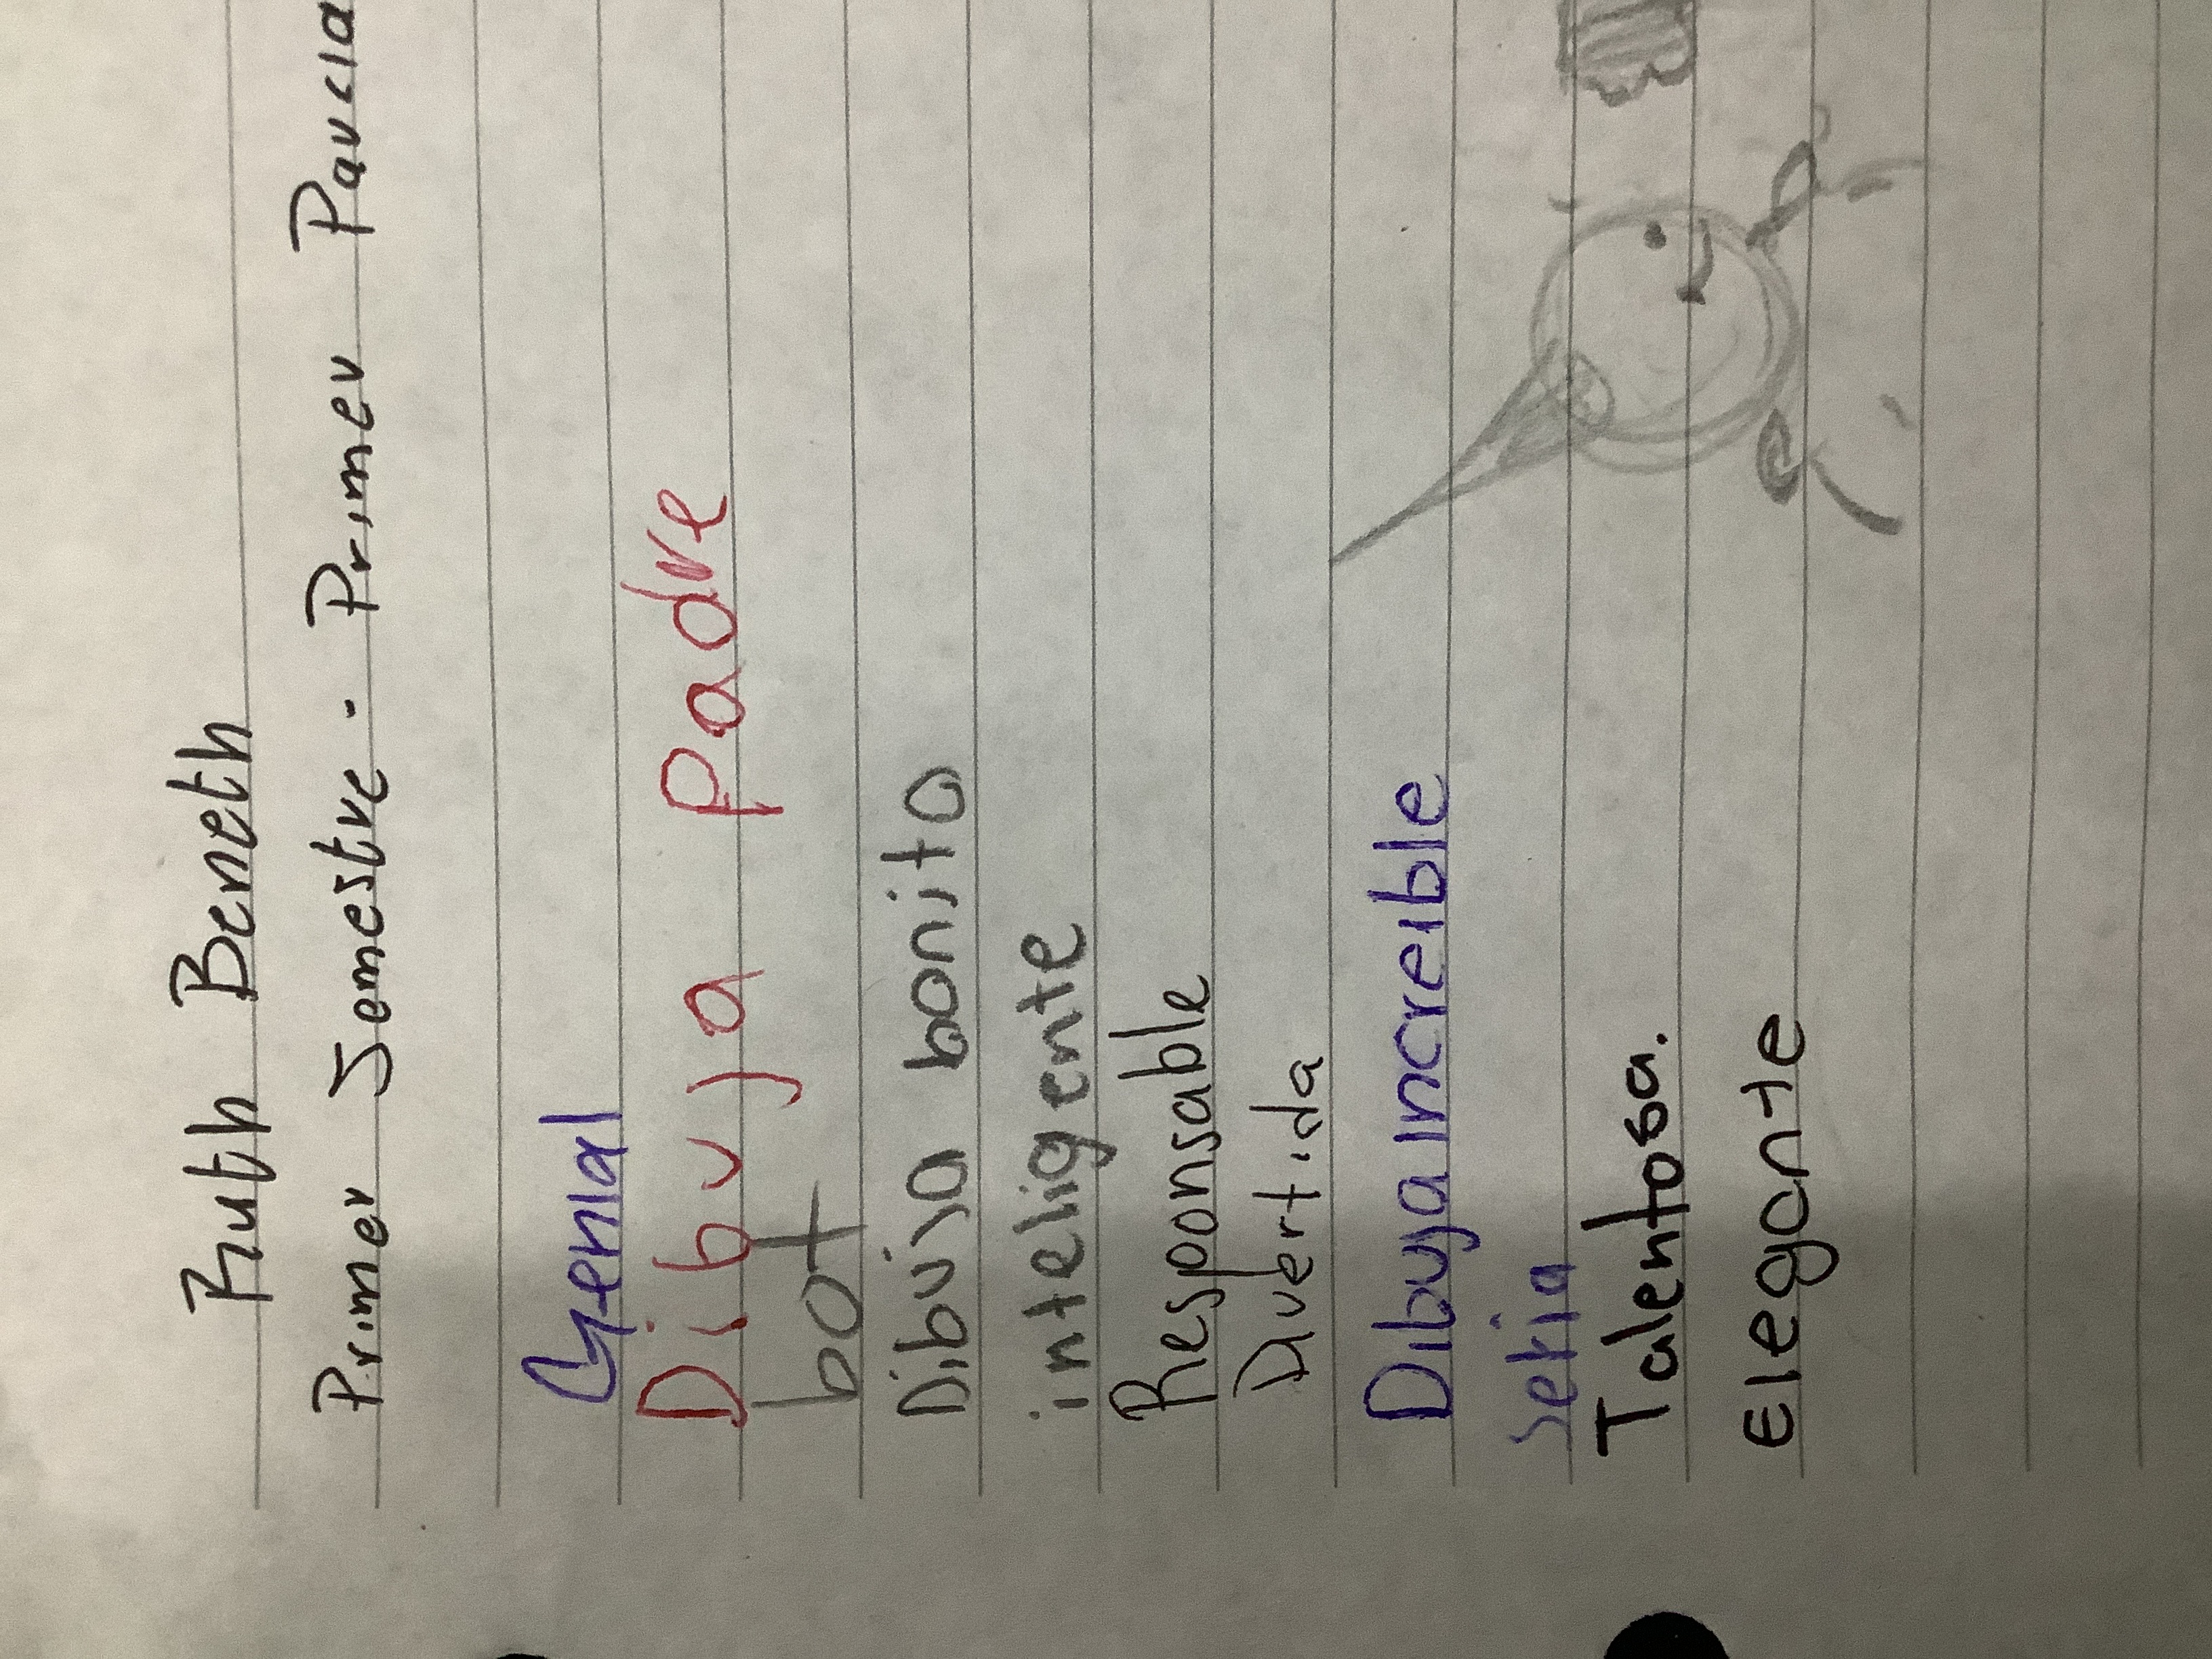 Ruth Beneth
Primer Semestre - Primer Parcia
Genial
Dibuja padre
bot
Dibuja bonito
inteligente
Responsable
Divertida
Dibuja increible
seria
Talentosa.
Elegante